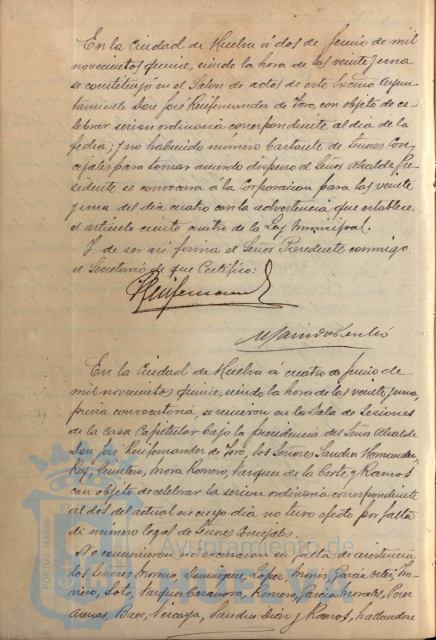 En la Ciudad de Huelva á dos de Junio de mil
novecientos quince, siendo la hora de las veinte y una
se constituyó en el Salon de actos de este Excmo Ayun-
tamiento Don José Ruifernandez de Toro, con objeto de ce-
lebrar sesion ordinaria correspondiente al dia de la
fecha; y no habiendo número bastante de Señores Con-
cejales para tomar acuerdo dispuso el Señor Alcalde Pre-
sidente se convocara á la Corporacion para las veinte
y una del dia cuatro con la advertencia que establece
el artículo ciento cuatro de la Ley Municipal.
Y de ser asi firma el Señor Presidente conmigo
el Secretario de que Certifico:
En la Ciudad de Huelva á cuatro de Junio de
mil novecientos quince, siendo la hora de las veinte y una,
previa convocatoria, se reunieron en la Sala de Sesiones
de la Casa Capitular bajo la presidencia del Señor Alcalde
Don José Ruifernandez de Toro, los Señores Sanchez Hernandez,
Rey, Quintero, Mora Romero, Vazquez de la Corte y Ramos
con objeto de celebrar la sesion ordinaria correspondiente
al dos del actual en cuyo dia no tuvo efecto por falta
de número legal de Señores Concejales.
No concurrieron ni excusaron su falta de asistencia
los Señores Moreno, Dominguez, Lopez García
Soto, Vazquez Romero, García Morales,
Baez, Vizcaya, Sanchez Diaz y Ramos, hallandose
Ayuntamiento de
PORTUS MARIS